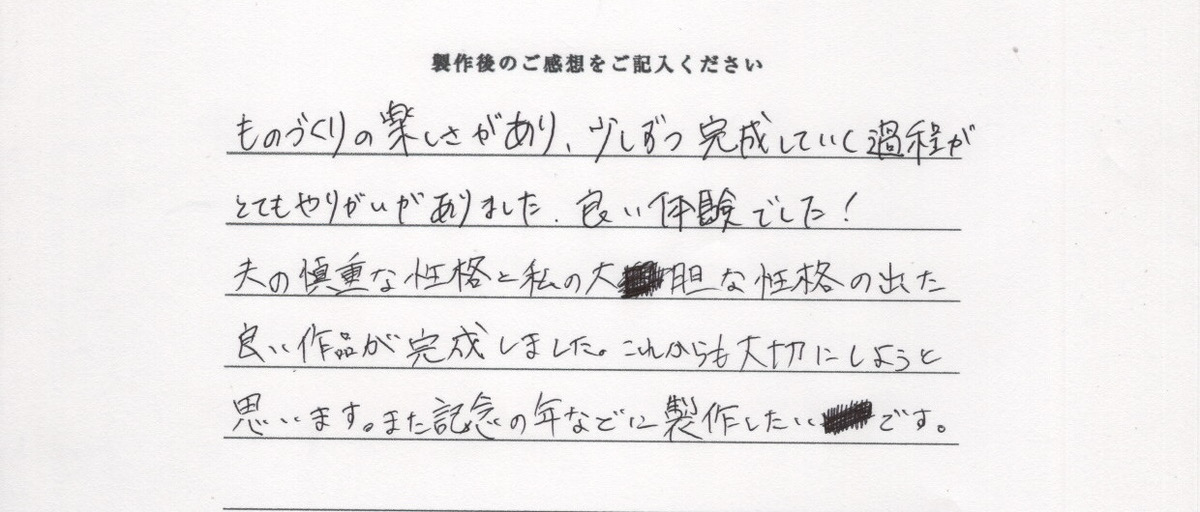 製作後のご感想をご記入ください
ものづくりの楽しさがあり、少しずつ完成していく過程が
とてもやりがいがありました。良い体験でした!
夫の慎重な性格と私の大胆な性格の出た
良い作品が完成しました。これからも大切にしようと
思います。また記念の年などに製作したいです。